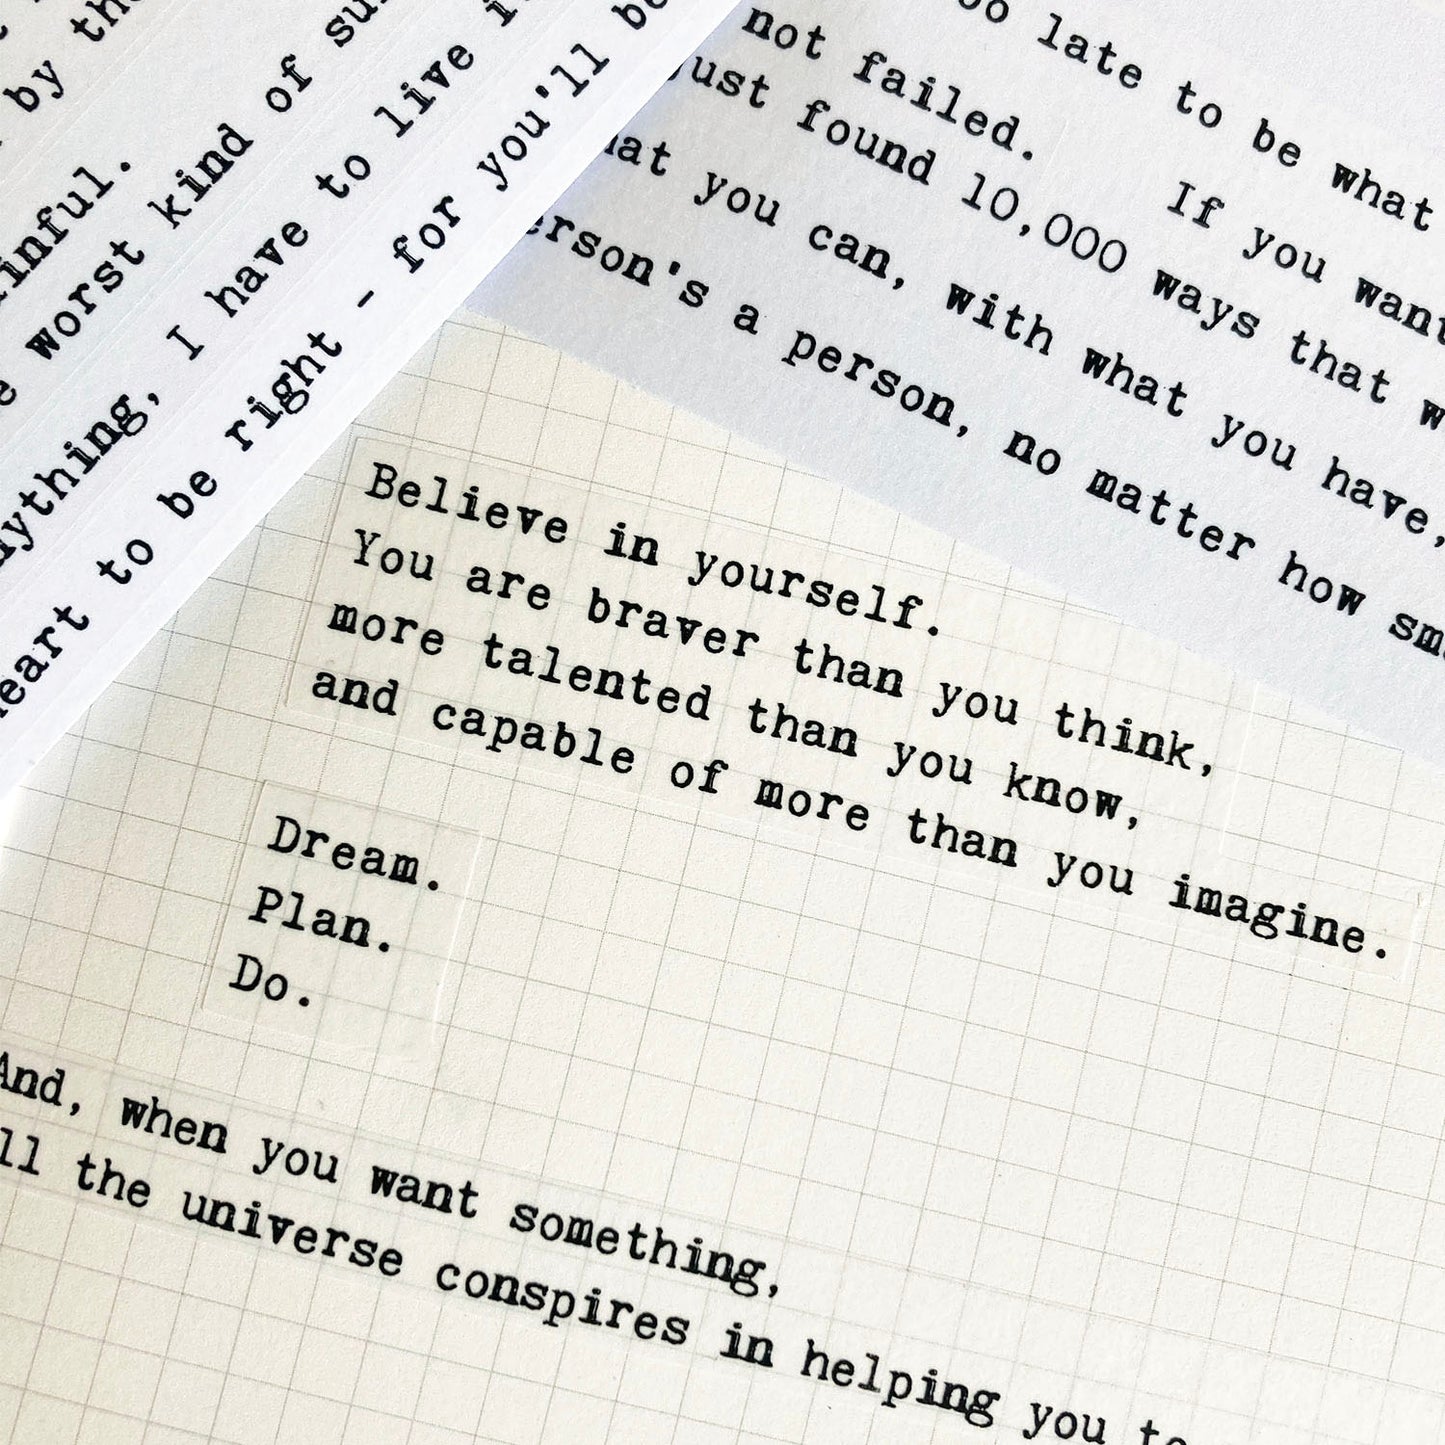 by
worst kind of
I have to live
to be right - for you'll
late to be what
not failed.
If you want
found 10,000 ways that
you can, with what you have,
a person, no matter how
Believe in yourself.
You are braver than you think,
more talented than you know,
and capable of more than you imagine.
Dream.
Plan.
Do.
And, when you want something,
the universe conspires in helping you